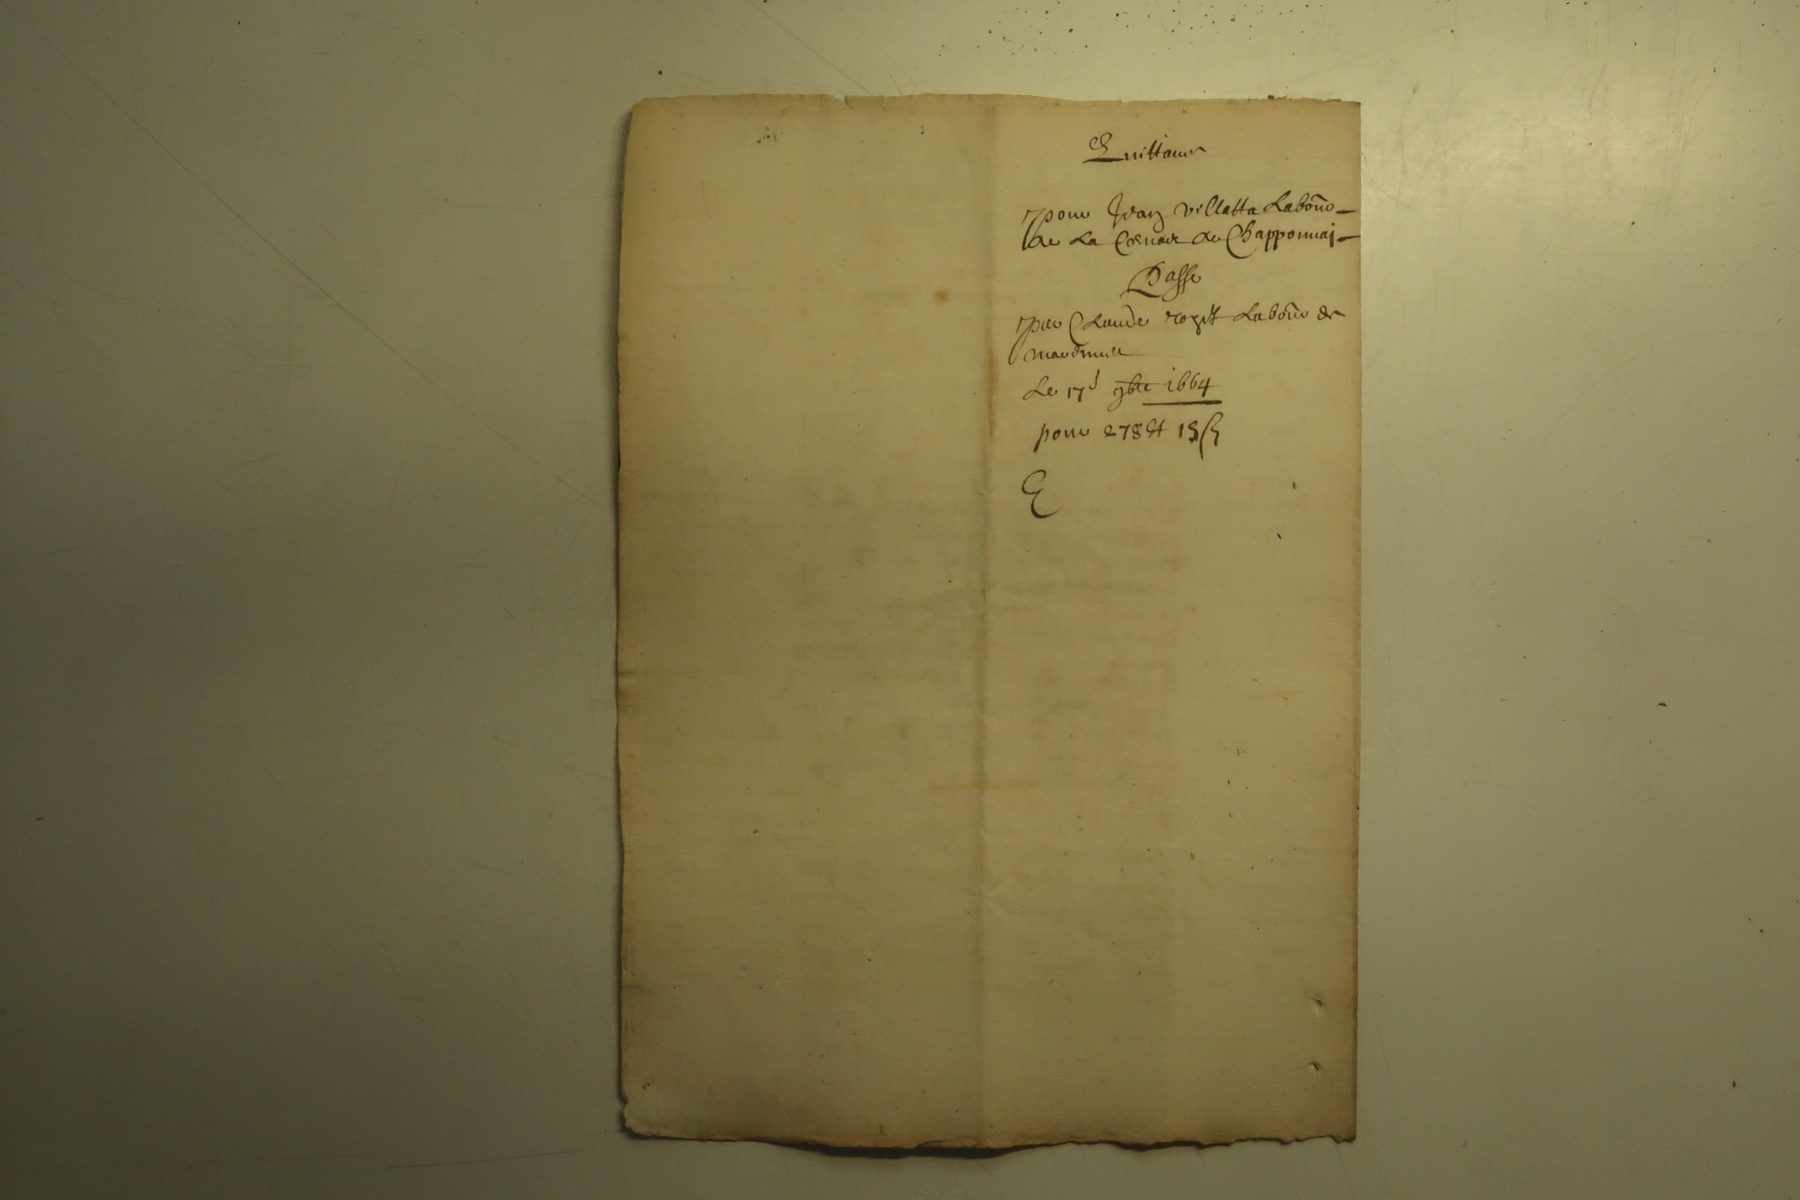 Quittance
pour Jean villatta Labour
de La Cornat de Chapponnai
Passe
par Claude rogit Labour de
Le 17e 9bre 1664
pour 278 lt 15 s
E